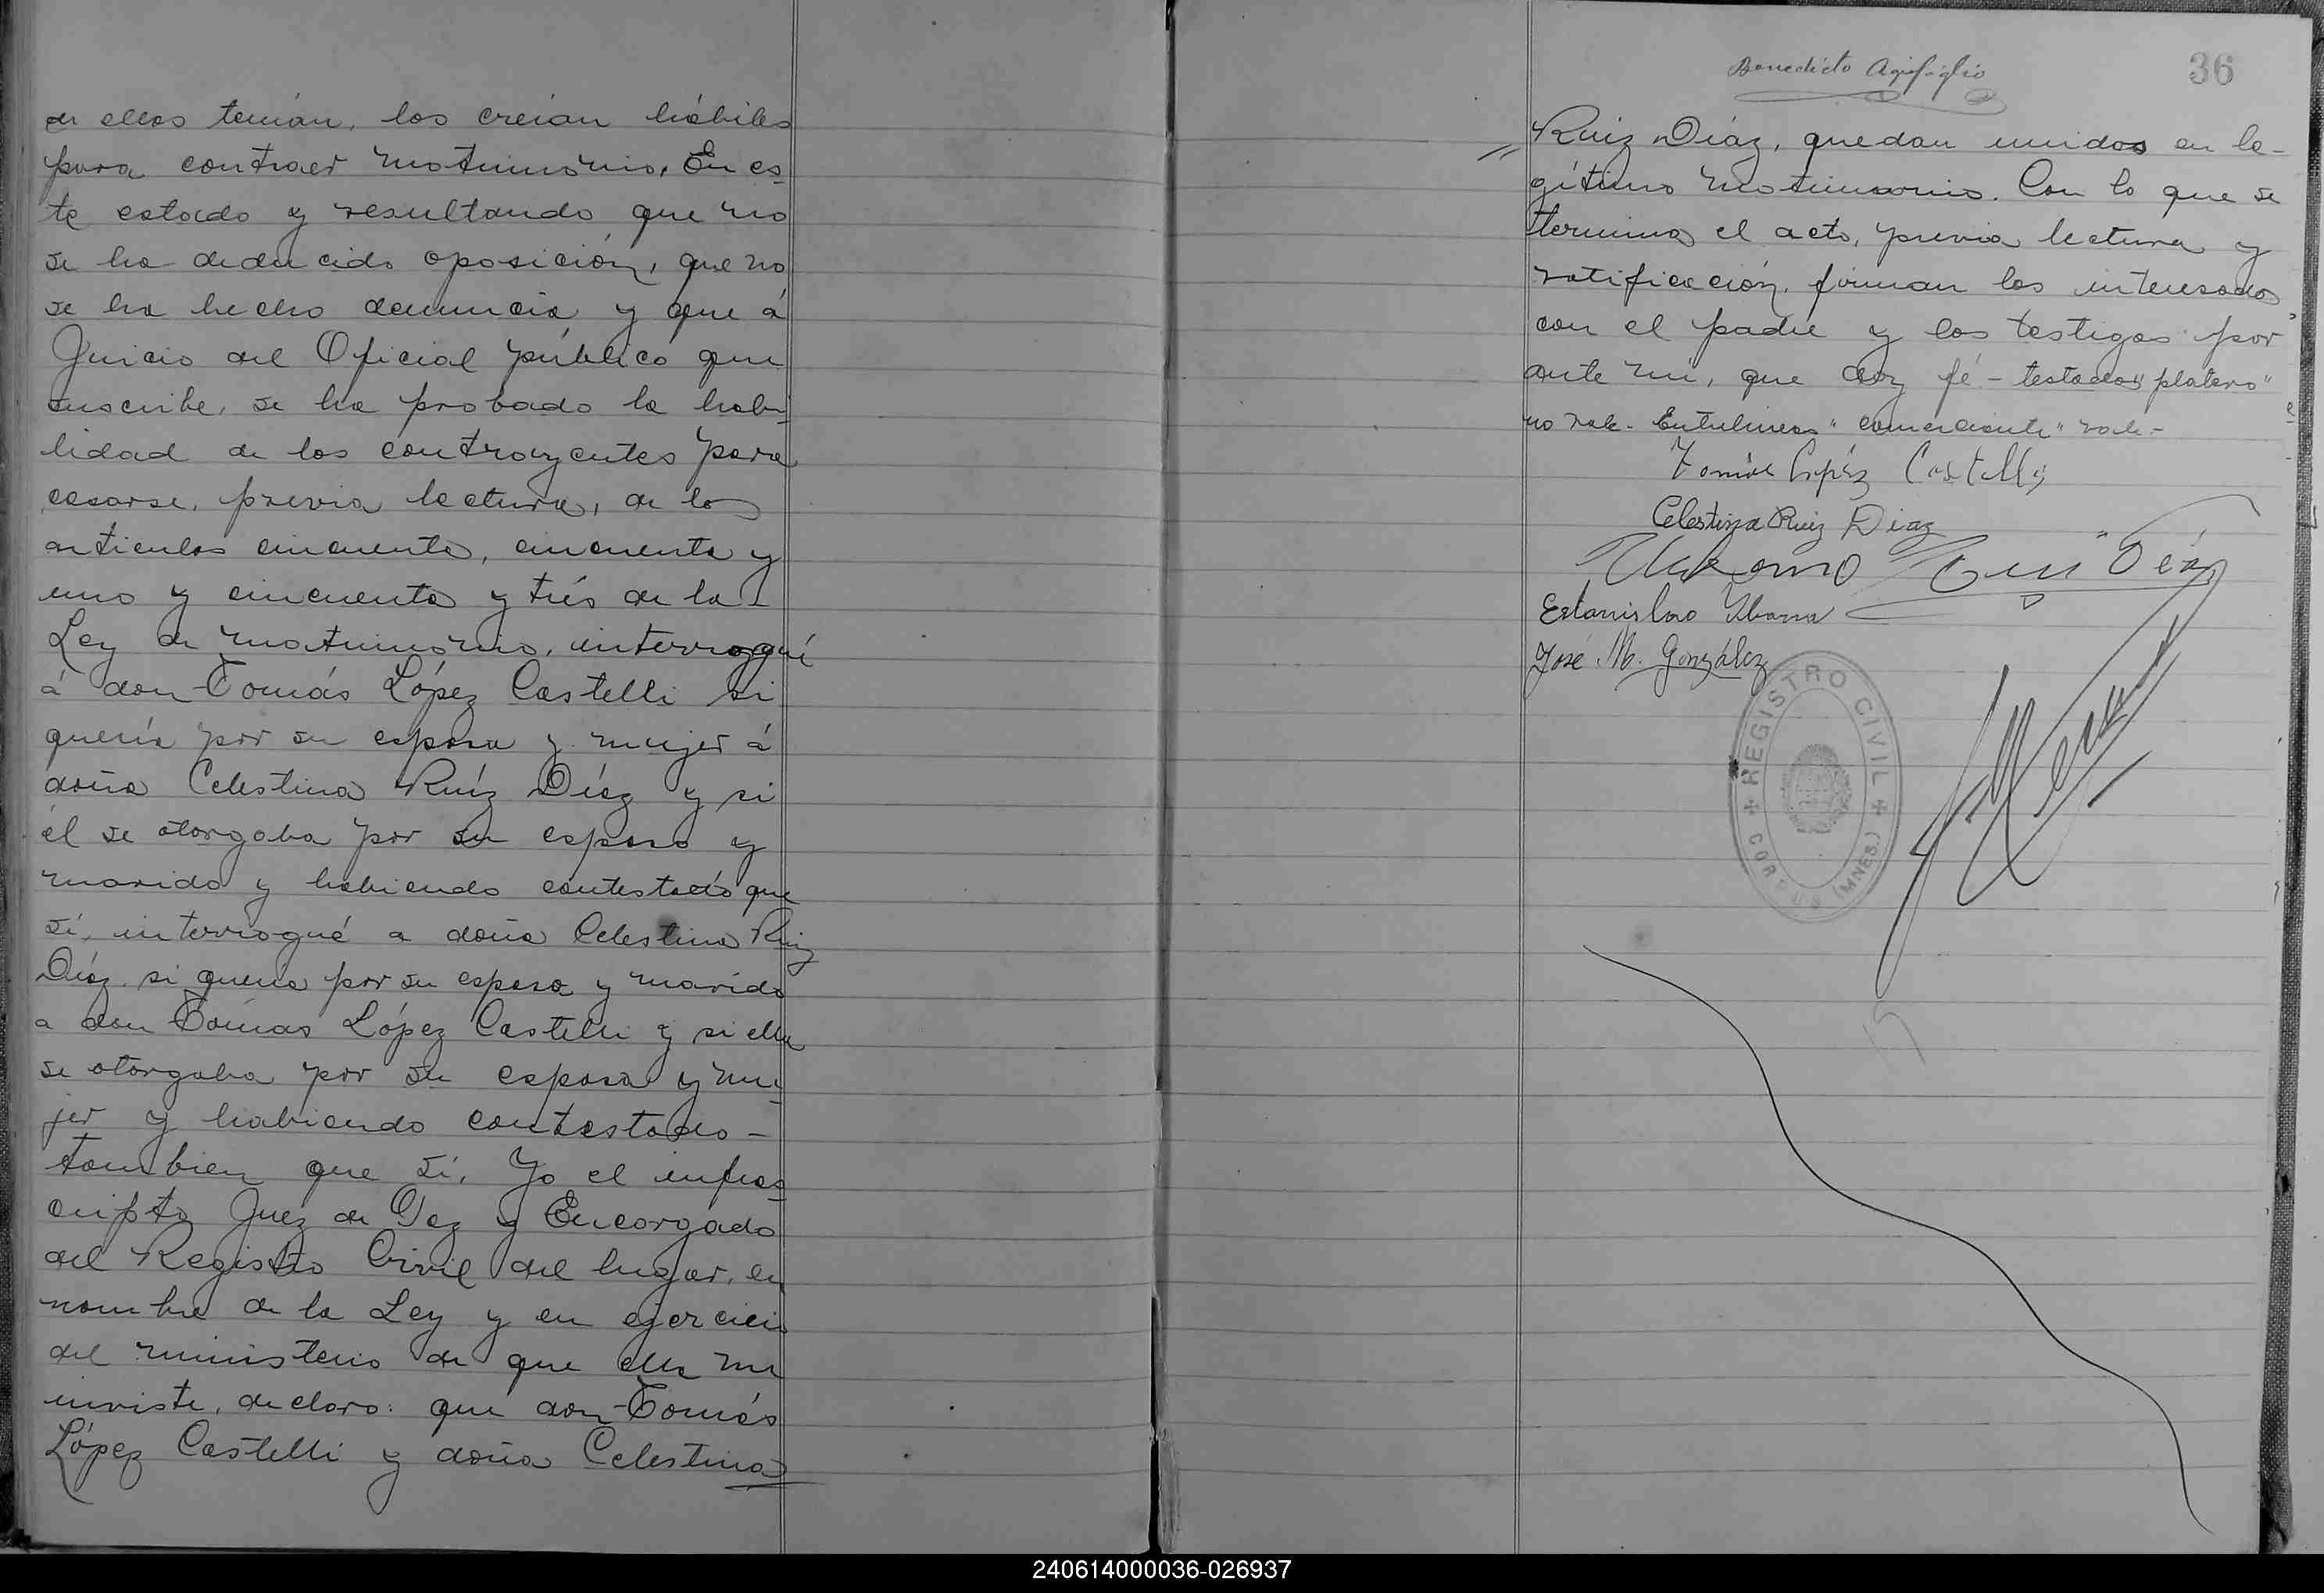 de ellos tenían, los creían hábiles
para contraer matrimonio. En es-
te estado y resultando que no
se ha deducido oposición, que no
se ha hecho denuncia y que á
Juicio del Oficial público que
suscribe, se ha probado la habi-
lidad de los contrayentes para
casarse, previa lectura, de los
articulos cincuenta, cincuenta y
uno y cincuenta y trés de la -
Ley de matrimonio, interrogué
á don Tomás López Castelli si
quería por su esposa y mujer á
doña Celestina Ruíz Díaz y si
él se otorgaba por su esposo y
marido y habiendo contestado que
sí, interrogué a doña Celestina Ruiz
Díaz si queria por su esposo y marido
a don Tomás López Castelli y si ella
se otorgaba por su esposa y mu-
jer y habiendo contestado -
tambien que sí, Yo el infras-
cripto Juez de Paz y Encargado
del Registro Civil del lugar, en
nombre de la Ley y en ejercicio
del ministerio de que ella me
inviste, declaro: que don Tomás
López Castelli y doña Celestina
Benedicto
36
Ruiz Díaz, quedan unidos en le-
gítimo matrimonio. Con lo que se
termina el acto, previa lectura y
ratificación, firman los interesados
con el padre y los testigos por
ante mí, que doy fé - testado "platero"
no vale - Entrelineas "comerciante" vale -
Tomás López Castelli
Celestina Ruiz Diaz
Ruiz Diaz
Estanislao Ybarra
José M. González
REGISTRO CIVIL
CORPUS (MNES.)
240614000036-026937